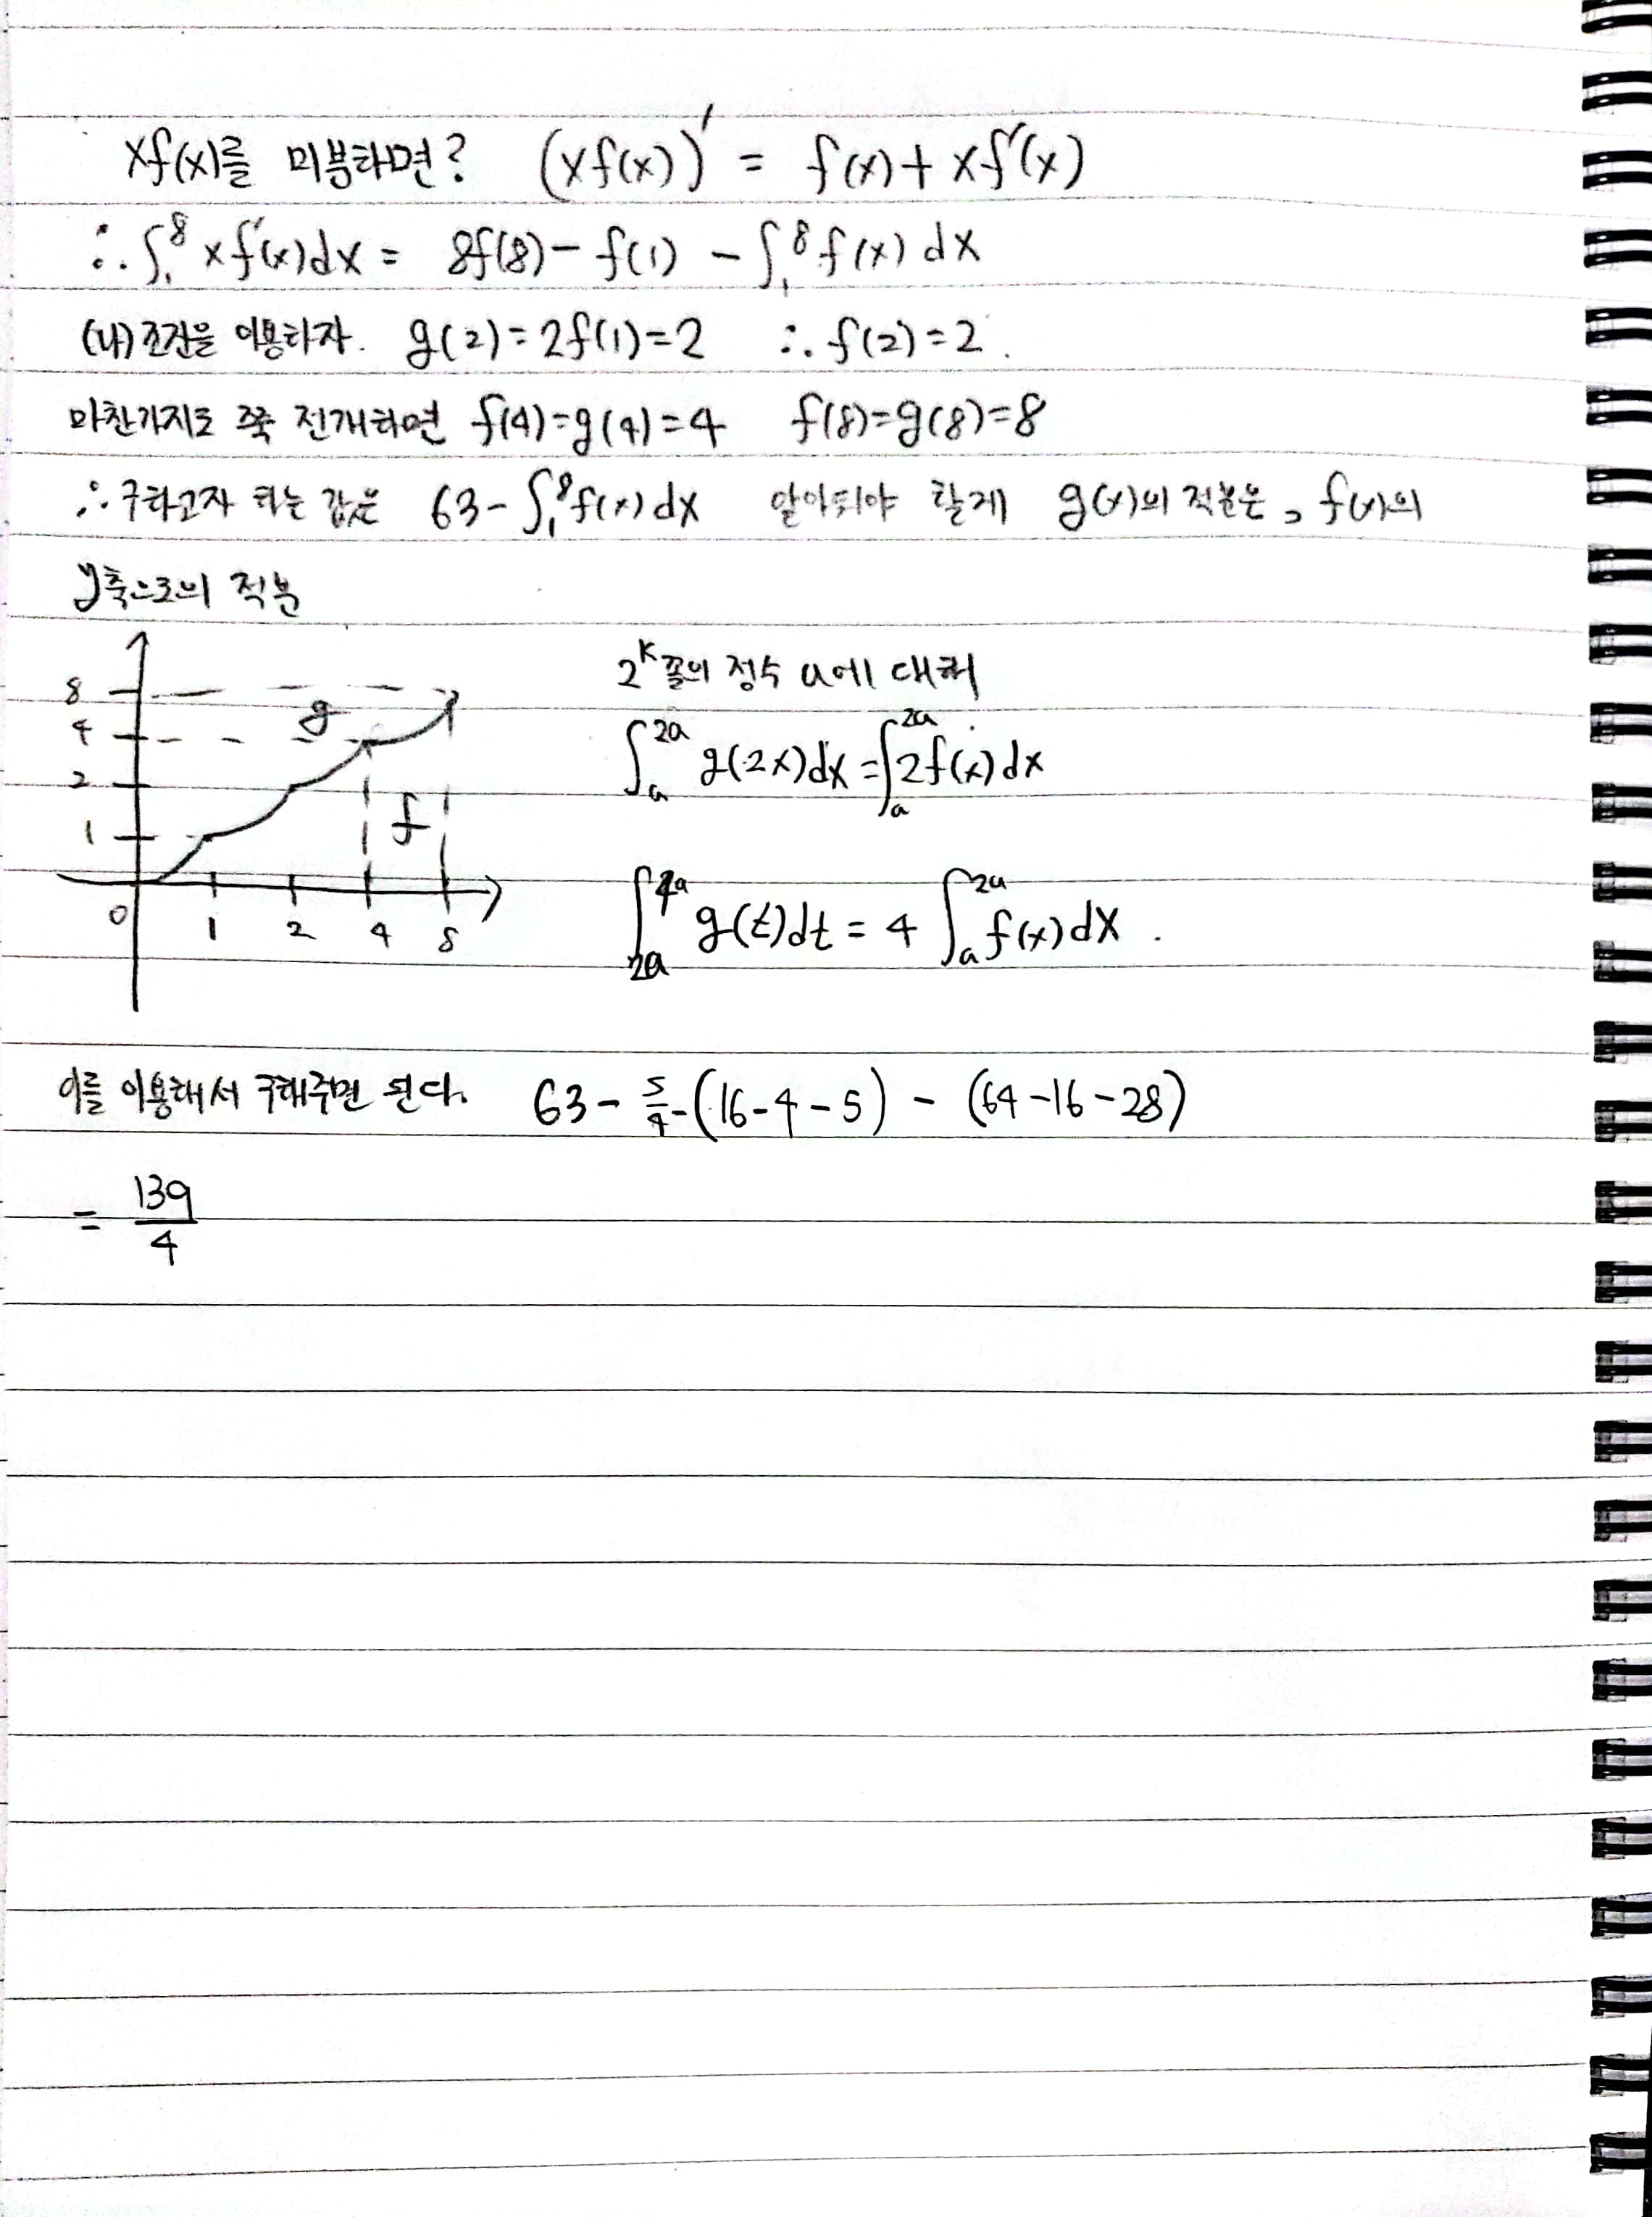 xf(x)를 미분하면? (xf(x))' = f(x)+xf'(x)
∴ ∫₁⁸ xf'(x)dx = 8f(8)-f(1) - ∫₁⁸ f(x) dx
(나)조건을 이용하자. g(2)=2f(1)=2 ∴ f(2)=2.
마찬가지로 쭉 전개하면 f(4)=g(4)=4 f(8)=g(8)=8
∴ 구하고자 하는 값은 63-∫₁⁸f(x)dx 알아둬야 할게 g(x)의 적분은, f(x)의
y축으로의 적분
8
4
2
1
0 1 2 4 8
g
f
2^k꼴의 정수 a에 대해
∫_a^{2a} g(2x)dx = ∫_a^{2a} 2f(x)dx
∫_{2a}^{4a} g(t)dt = 4 ∫_a^{2a} f(x)dx .
이를 이용해서 구해주면 된다. 63 - 5/4 - (16-4-5) - (64-16-28)
= 139/4